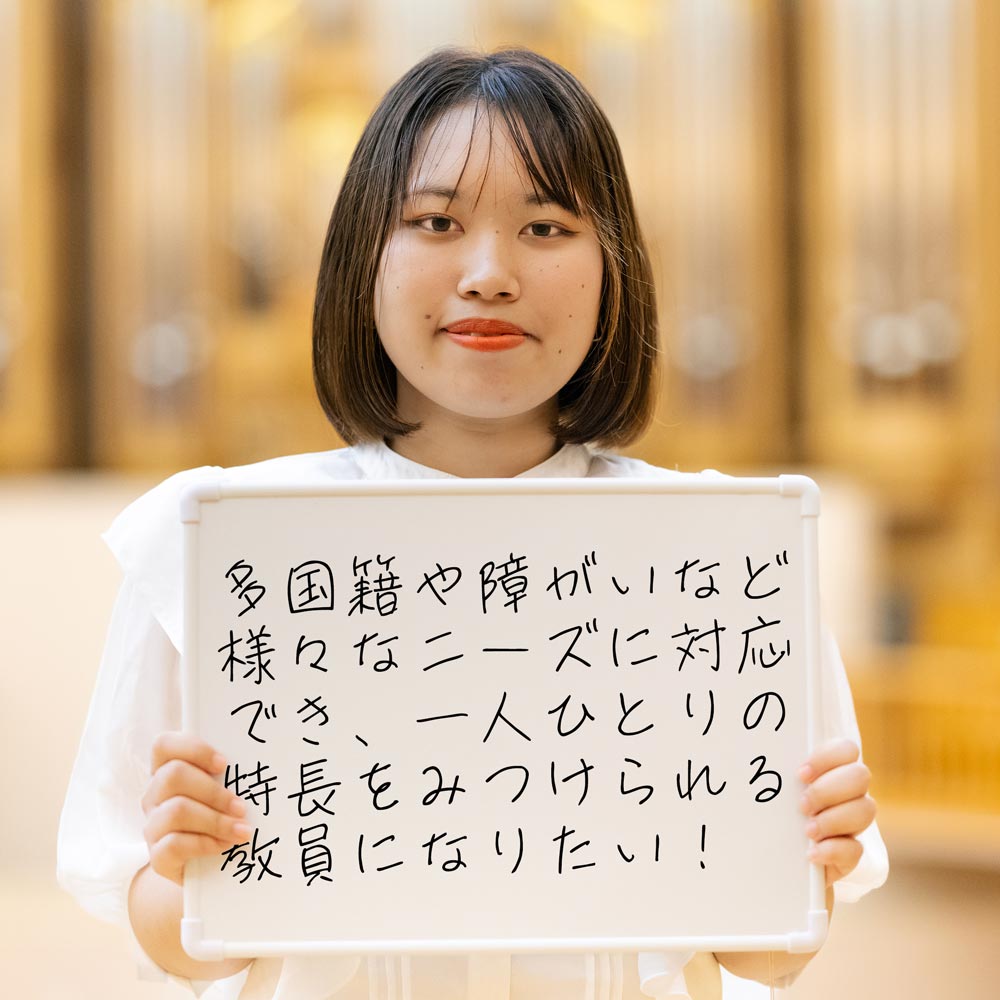 多国籍や障がいなど
様々なニーズに対応
でき、一人ひとりの
特長をみつけられる
教員になりたい！